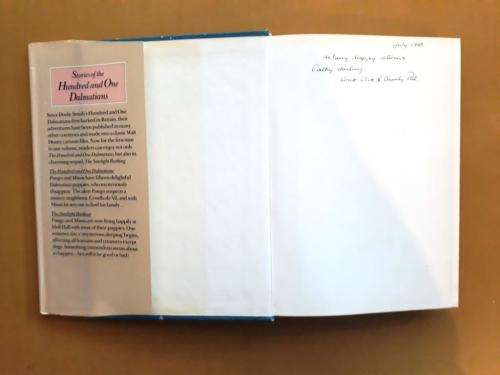 Stories of the
Hundred and One
Dalmatians
Since Dodie Smith's Hundred and One
Dalmatians first barked in Britain, their
adventures have been published in many
other countries and made into a classic Walt
Disney cartoon film. Now for the first time
in one volume, readers can enjoy not only
The Hundred and One Dalmatians, but also its
charming sequel, The Starlight Barking
The Hundred and One Dalmatians
Pongo and Missis have fifteen delightful
Dalmatian puppies, who mysteriously
disappear. The alert Pongo suspects a
sinister neighbour, Cruella de Vil, and with
Missis he sets out to find his family...
The Starlight Barking
Pongo and Missis are now living happily at
Hell Hall with most of their puppies. One
summer day, a mysterious sleeping begins,
affecting all humans and creatures except
dogs. Something tremendous seems about
to happen – but will it be good or bad?
July
Many happy returns
Cathy darling
love &